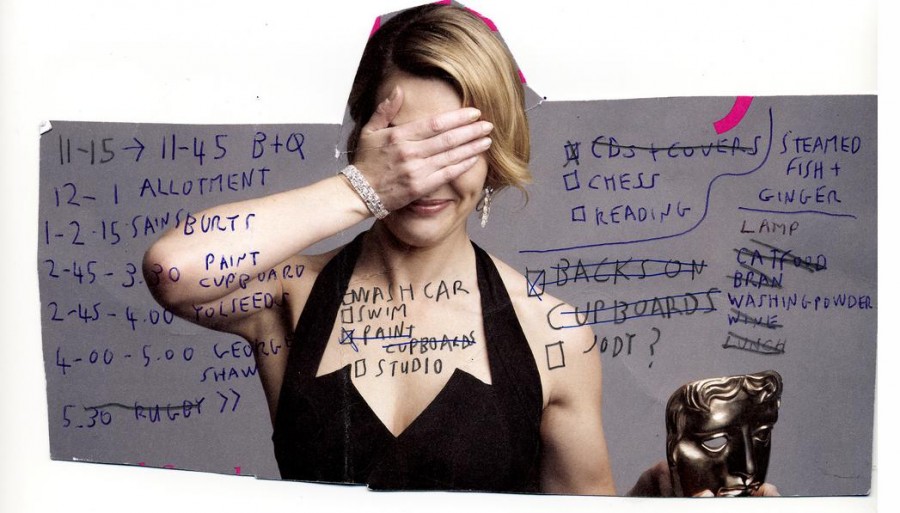 11-15 → 11-45 B+Q
12-1 ALLOTMENT
1-2-15-SAINSBURYS
2-45-3.30 PAINT
CUPBOARD
2-45-4.00 YOLSEEDS
4-00-5.00 GEORGE
SHAW
5.30 RUGBY >>
WASH CAR
SWIM
PAINT
CUPBOARDS
STUDIO
CDS + COVERS
CHESS
READING
BACKS ON
CUPBOARDS
JODY?
STEAMED
FISH +
GINGER
LAMP
CATFOOD
BRAN
WASHING-POWDER
WINE
LUNCH